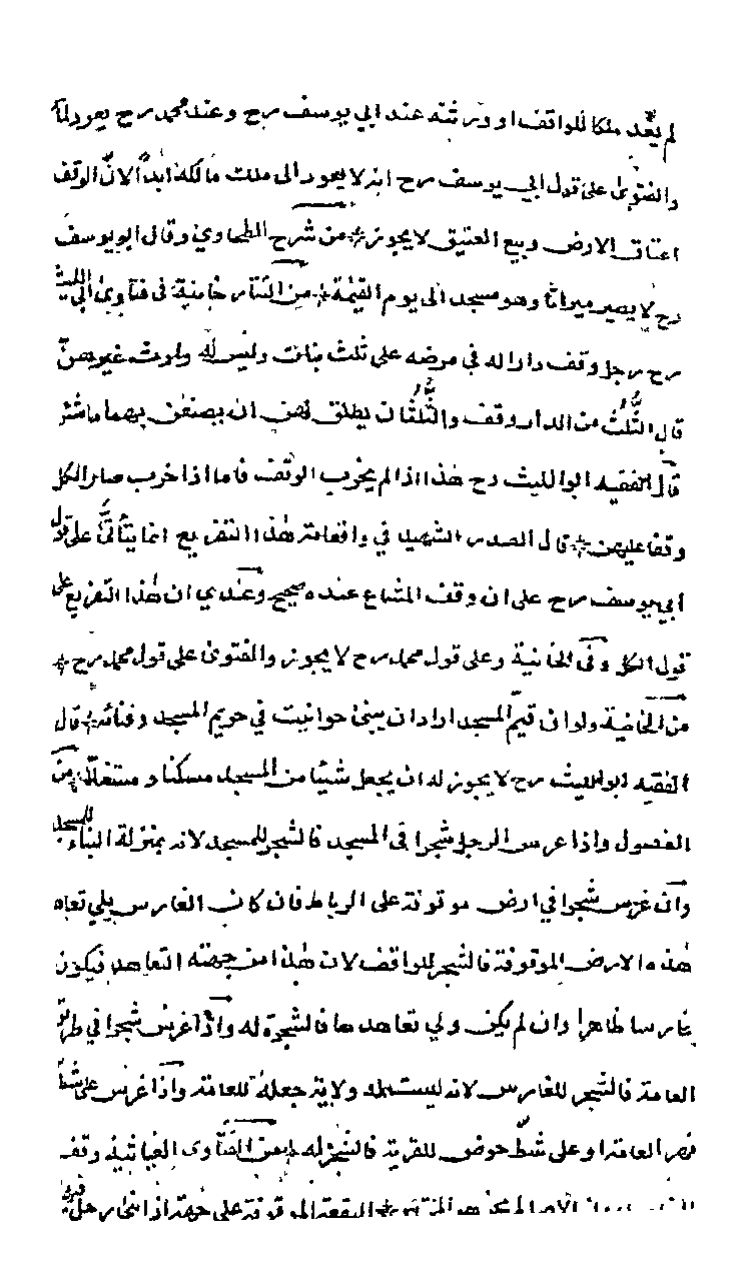 لم يعد ملكا للواقف او ورثته عند ابي يوسف رح وعند محمد رح يعود لما
والفتوى على قول ابي يوسف رح انه لا يعود الى ملك مالكه ابدا لان الوقف
اعتاق الارض وبيع العتيق لا يجوز من شرح الطحاوي وقال ابو يوسف
رح لا يصير ميراثا وهو مسجد الى يوم القيمة من التتار خانية في فتاوى ابي الليث
رح رجل وقف دارا له في مرضه على ثلث بنات وليس له وارث غيرهن
قال الثلث من الدار وقف والثلثان يطلق لهن ان يصنعن بهما ما شئن
قال الفقيه ابو الليث رح هذا اذا لم يخرب الوقف فاما اذا خرب صار الكل
وقفا عليهن قال الصدر الشهيد في واقعاته هذا التفريع انما يتأتى على قول
ابي يوسف رح على ان وقف المشاع عنده صحيح وعندي ان هذا التفريع على
قول الكل وفي الخانية وعلى قول محمد رح لا يجوز والفتوى على قول محمد رح
من الخانية ولو ان قيم المسجد اراد ان يبنى حوانيت في حريم المسجد وفنائه قال
الفقيه ابو الليث رح لا يجوز له ان يجعل شيئا من المسجد مسكنا و مستغلا من
الفصول واذا غرس الرجل شجرا في المسجد فالشجر للمسجد لانه بمنزلة البناء للمسجد
وان غرس شجرا في ارض موقوفة على الرباط فان كان الغارس يلي تعاهد
هذه الارض الموقوفة فالشجر للواقف لان هذا من جهته التعاهد فيكون
غارسا ظاهرا وان لم يكن ولي تعاهدها فالشجرة له واذا غرس شجرا في طريق
العامة فالشجر للغارس لانه ليست له ولاية جعله للعامة واذا غرس على شط
نهر العامة او على شط حوض للقرية فالشجر له من الفتاوى الغياثية وقف
البقعة الموقوفة على جهة اذا بنى رجل فيها